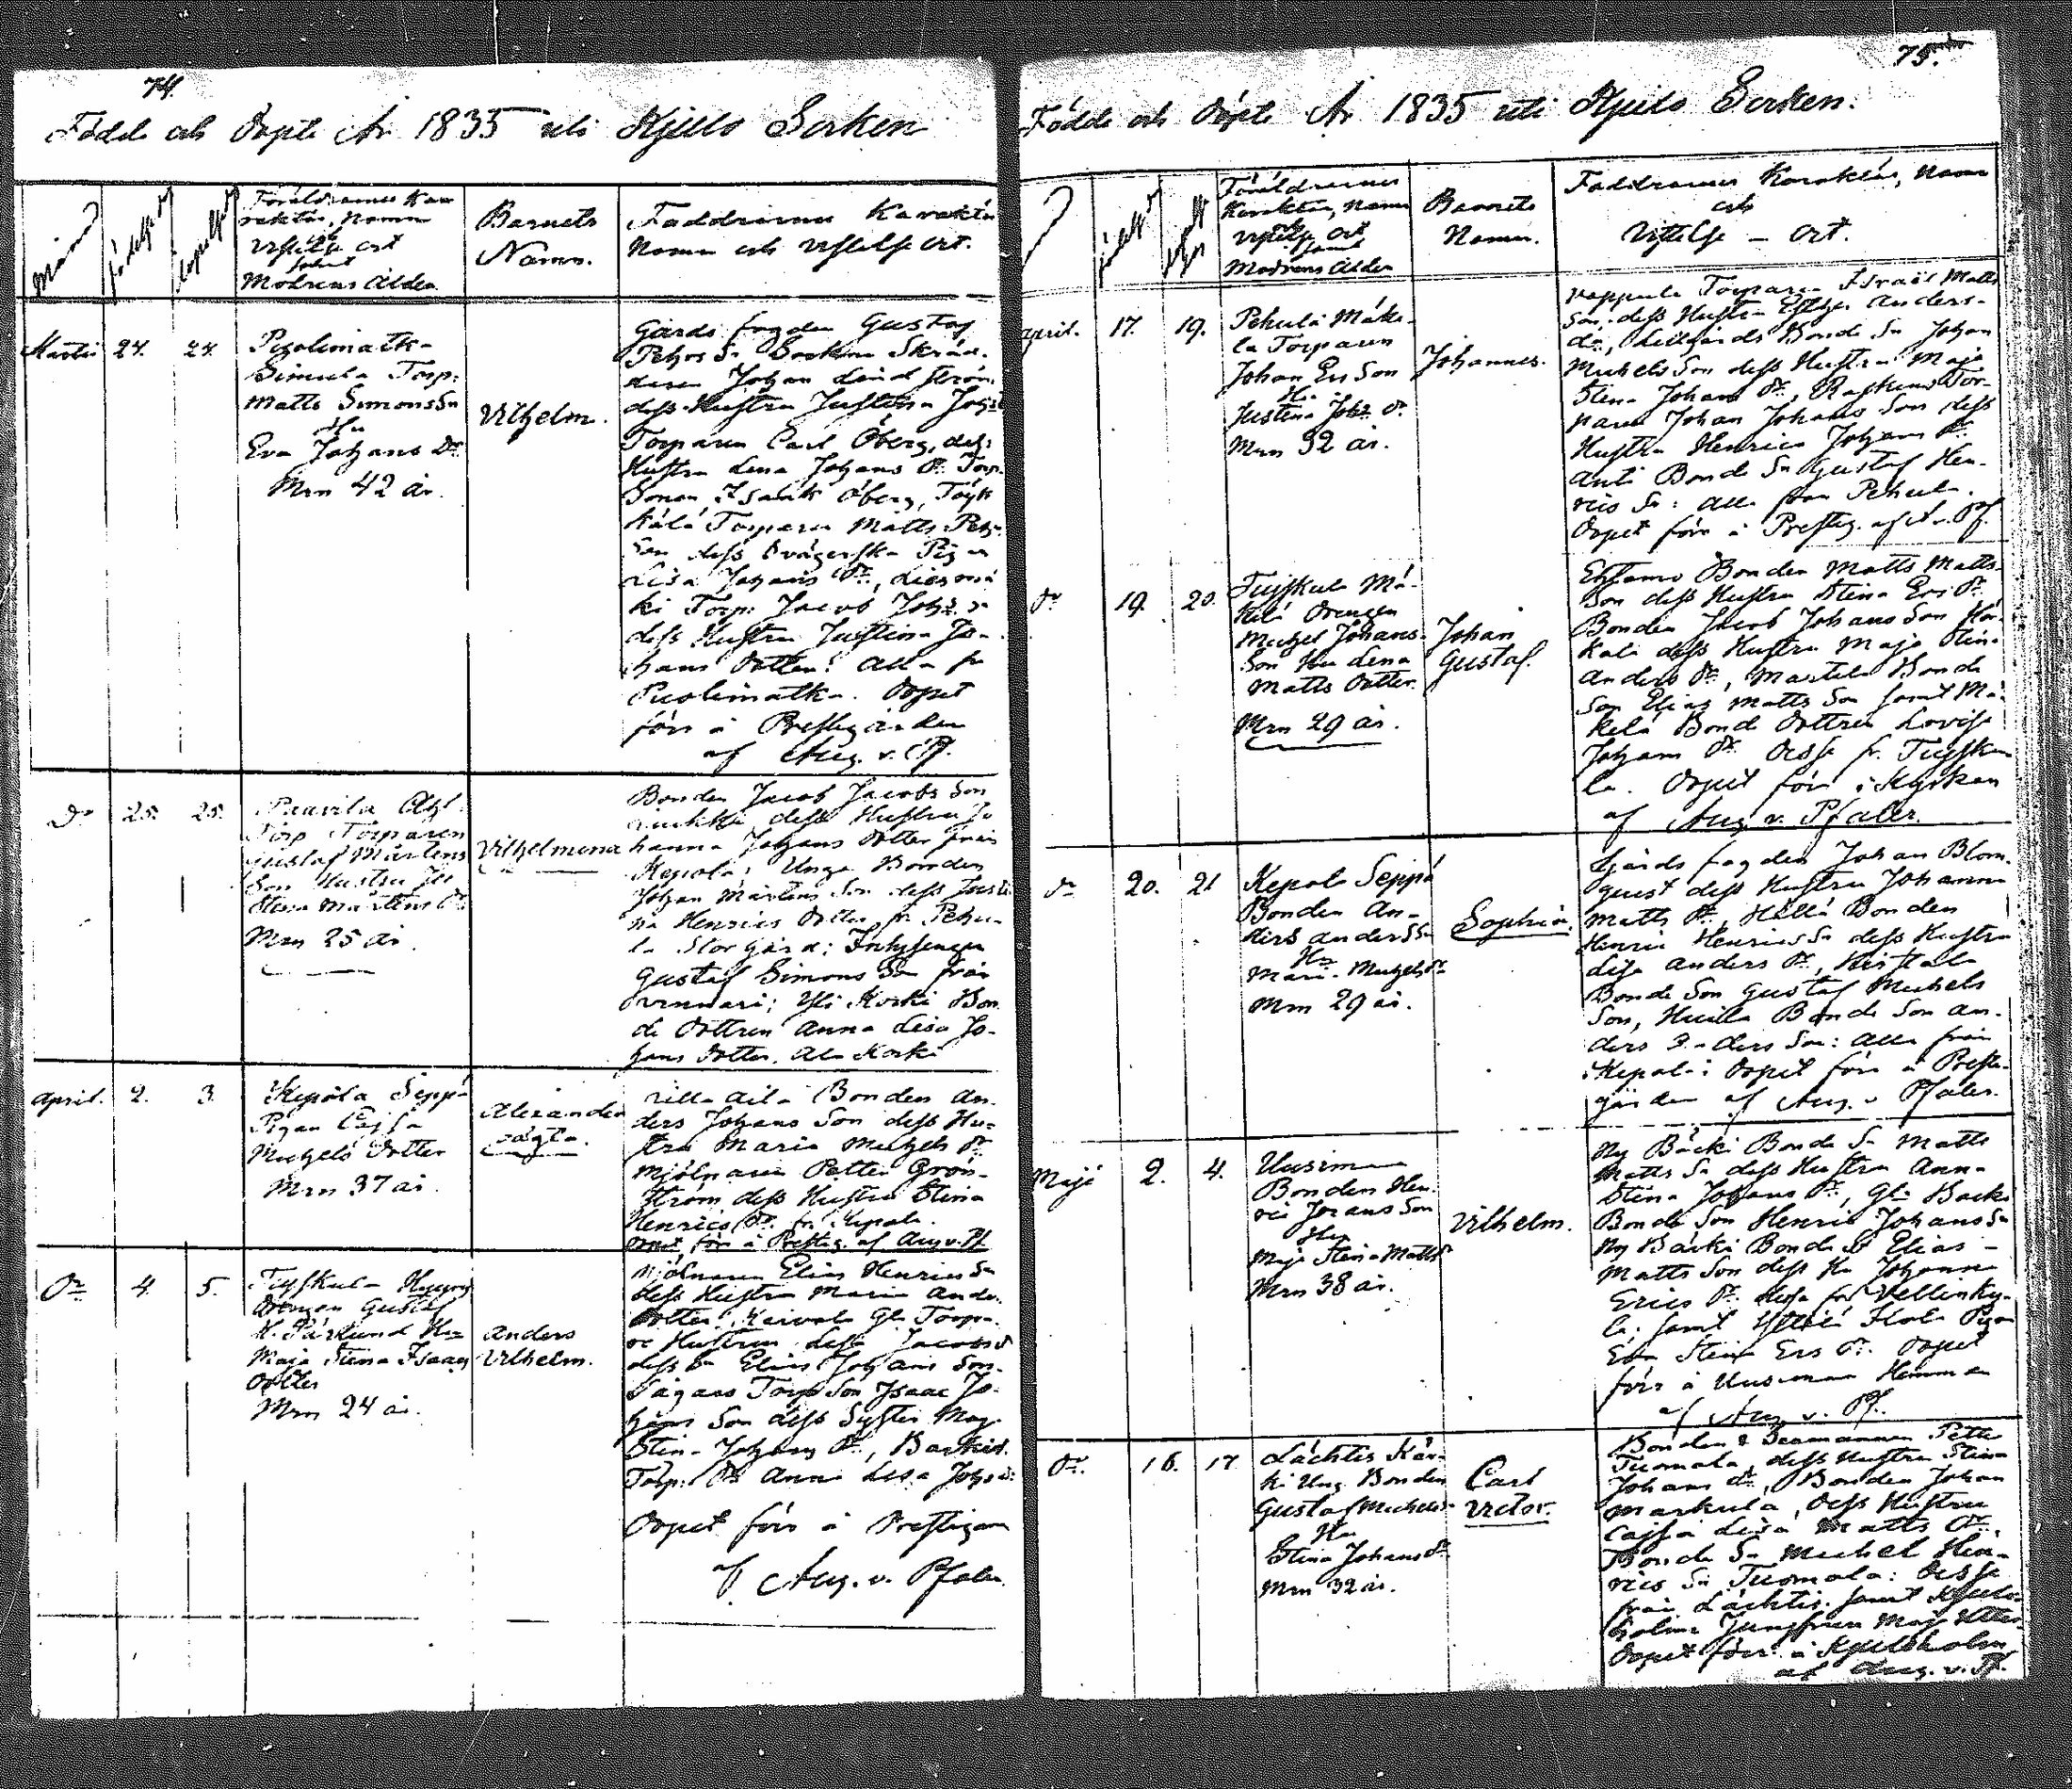 74.
Födde och Döpte År 1835 uti Kjulo Socken
Månad
födelse d
döpelse d
Föräldrarnes Ka
rakter, Namn
och
Vistelse ort
samt
Modrens Ålder
Barnets
Namn.
Faddrarnes Karakter
Namn och Vistelse Ort.
Martii 24. 24.
Puolimatka
Simula Torp:
Matts SimonsSn
Hu
Eva Johans Dr
Mrn 42 år.
Vilhelm.
Gårds fogden Gustaf
Pehrs Sn Sockne Skräd-
daren Johan Lindström
dess Hustru Justina Joh:
Torparen Carl Öberg, dess
Hustru Lena Johans Dr Torp.
Sonen Isaak Öberg,
Torparen Matts Pehr
Son dess Svägerska Pigan
Lisa Johans Dr,
ki Torp: Jacob Johs S
dess Hustru Justina Jo-
hans Dotter: Alla fr
Puolimatka. Döpet
förr: å Prestegården
af Aug. v. Pf.
Do 25. 25.
Paavila
Torp Torparen
Gustaf Mårtens
Son Hustru
Stina Mårtens Dr
Mrn 25 år.
Vilhelmina
Bonden Jacob Jacobs Son
dess Hustru Jo
hanna Johans Dotter från
Kepola; Unge Bonden
Johan Mårtens Son dess Justi
na Henrics Dotter fr Pehu-
la Storgård; Inhysingen
Gustaf Simons Sn från
Yli Korki Bon
de Dottren Anna Lisa Jo-
hans Dotter. Ala Korki
April. 2. 3.
Kepola Seppä
Pigan Cajsa
Michels Dotter
Mrn 37 år.
Alexander
oägta.
Bonden An-
ders Johans Son dess Hu-
stru Maria Michels Dr
Mjölnaren Petter Grön-
ström dess Hustru Stina
Henrics Dr fr Kepola.
Döpet förr: å Presteg. af Aug v. Pf.
Do 4. 5.
Tuiskula
Drengen Gustaf
Hu
Maja Stina Isaacs
Dotter
Mrn 24 år.
Anders
Vilhelm.
Mjölnaren Elias Henrics Sn
dess Hustru Maria Anders
Dotter: Keivola Gl. Torpa-
re Hustrun Lisa Jacobs D
dess Sn Elias Johans Son
Torp Son Isaac Jo-
hans Son dess Syster Maja
Stina Johans Dr,
Torp: Dr Anna Lisa Johs D:
Döpet förr å Prestegården
af Aug. v. Pfaler.
75.
Födde och Döpte År 1835 uti Kjulo Socken.
födelse d
döpelse d
Föräldrarnes
Karakter, Namn
och
Vistelse Ort
samt
Modrens Ålder
Barnets
Namn.
Faddrarnes Karakter, Namn
och
Vistelse – Ort.
April. 17. 19.
Pehula Mäke-
la Torparen
Johan Ers Son
Hu
Justina Johs Dr
Mrn 32 år.
Johannes.
Torparen Israel Matts
Son, dess Hustru Esther Anders-
dr, Lillgårds Bonde Sn Johan
Michels Son dess Hustru Maja
Stina Johans Dr, Tor-
paren Johan Johans Son dess
Hustru Henrica Johans Dr
Anti Bonde Sn Gustaf Hen-
rics Sn: alla från Pehula.
Döpet förr å Presteg. af A. v. Pf.
Do 19. 20.
Tuiskula Mä-
kelä Drengen
Michel Johans
Son Hu Lena
Matts Dotter
Mrn 29 år.
Johan
Gustaf.
Bonden Matts Matts
Son dess Hustru Stina Ers Dr
Bonden Jacob Johans Son
dess Hustru Maja Stina
Anders Dr, Martela Bonde
Son Elias Matts Son samt Mä-
kelä Bonde Dottren Lovisa
Johans Dr Desse fr. Tuisku-
la. Döpet förr i Kyrkan
af Aug v. Pfaler.
Do 20. 21
Kepola Seppä
Bonden An-
ders AndersSn
Hu
Maria Michels Dr
Mrn 29 år.
Sophia.
Gårds fogden Johan Blom-
quist dess Hustru Johanna
Matts Dr, Hällä Bonden
Henric HenricsSn dess Hustru
Lisa Anders Dr,
Bonde Son Gustaf Michels
Son, Bonde Son An-
ders Sn: alla från
Kepola: Döpet förr å Preste-
gården af Aug. v Pfaler.
Maji 2. 4.
Uusimaa
Bonden Hen-
ric Johans Son
Hu
Maja Stina Matts D
Mrn 38 år.
Vilhelm.
Ny Bäcki Bonde Sn Matts
Matts Sn dess Hustru Anna
Stina Johans Dr, Gl: Bäcki
Bonde Son Henric Johans Sn
Ny Bäcki Bonde S Elias
Matts Son dess Hu Johanna
Erics Dr desse fr Vellinky-
la; samt Pigan
Eva Stina Ers Dr. Döpet
förr å Uusimaa Hemman
af Aug v. Pf.
Do. 16. 17
Lächtis Kär-
ki Ung Bonden
Gustaf Michels
Hu
Stina Johans Dr
Mrn 32 år.
Carl
Victor.
Bonden & Sexmannen Petter
Tuomola, dess Hustru Stina
Johans dr, Bonden Johan
Markula, dess Hustru
Cajsa Lisa Matts Dr,
Bonde Sn Michel Hen-
rics Sn Tuomola: Desse
från Lächtis. samt Kjulo-
holms Jungfrun Maj:
Döpet förr: å Kjuloholm
af Aug. v. Pf.